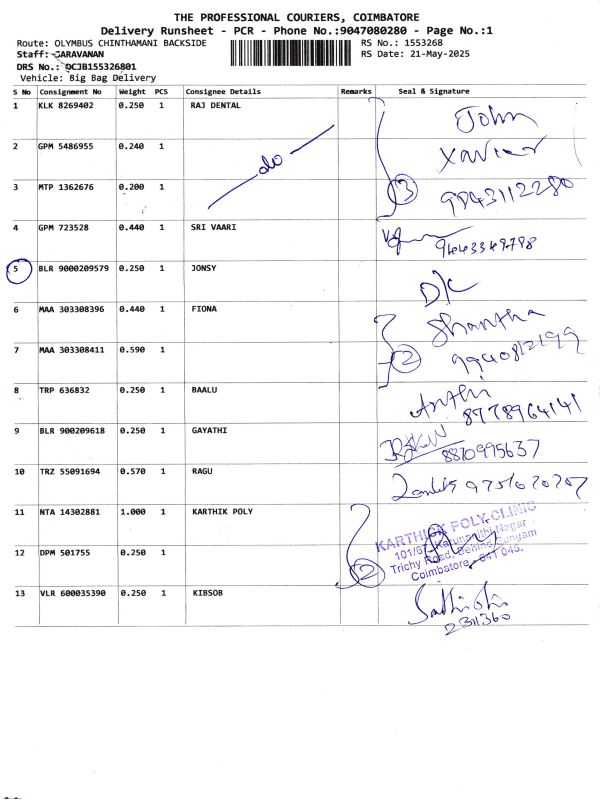 THE PROFESSIONAL COURIERS, COIMBATORE
Delivery Runsheet - PCR - Phone No.:9047080280 - Page No.:1
Route: OLYMBUS CHINTHAMANI BACKSIDE RS No.: 1553268
Staff: SARAVANAN RS Date: 21-May-2025
DRS No.: QCJB155326801
Vehicle: Big Bag Delivery
S No Consignment No Weight PCS Consignee Details Remarks Seal & Signature
1 KLK 8269402 0.250 1 RAJ DENTAL John
2 GPM 5486955 0.240 1 do Xavier
3 MTP 1362676 0.200 1 3 9843112280
4 GPM 723528 0.440 1 SRI VAARI
5 BLR 9000209579 0.250 1 JONSY D/C
6 MAA 303308396 0.440 1 FIONA Shantha
7 MAA 303308411 0.590 1 2 9940812199
8 TRP 636832 0.250 1 BAALU 8778964141
9 BLR 900209618 0.250 1 GAYATHI 8810995637
10 TRZ 55091694 0.570 1 RAGU
11 NTA 14302881 1.000 1 KARTHIK POLY KARTHICK POLY CLINIC
12 DPM 501755 0.250 1 2 Trichy Road,
Coimbatore - 641 045.
13 VLR 600035390 0.250 1 KIBSOB
2311360